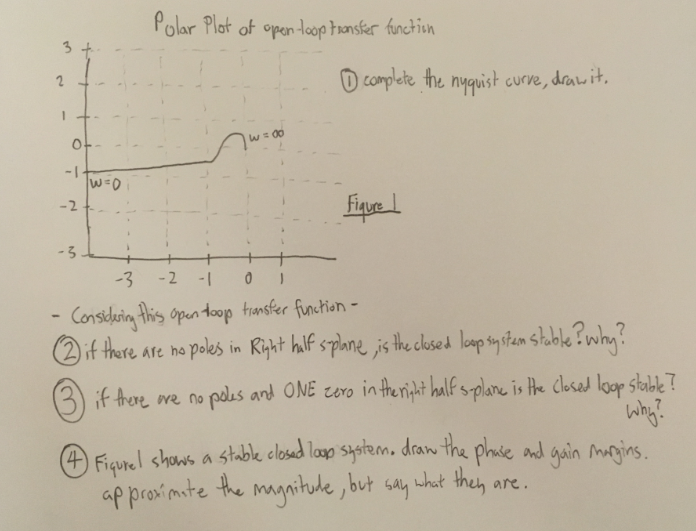 Polar Plot of open-loop transfer function
3
2
1
0
-1
-2
-3
w=∞
w=0
-3 -2 -1 0 1
Figure 1
① complete the nyquist curve, draw it.
- Considering this open-loop transfer function -
② if there are no poles in Right half s-plane, is the closed loop system stable? why?
③ if there are no poles and ONE zero in the right half s-plane is the closed loop stable?
why?
④ Figure 1 shows a stable closed loop system. draw the phase and gain margins.
approximate the magnitude, but say what they are.